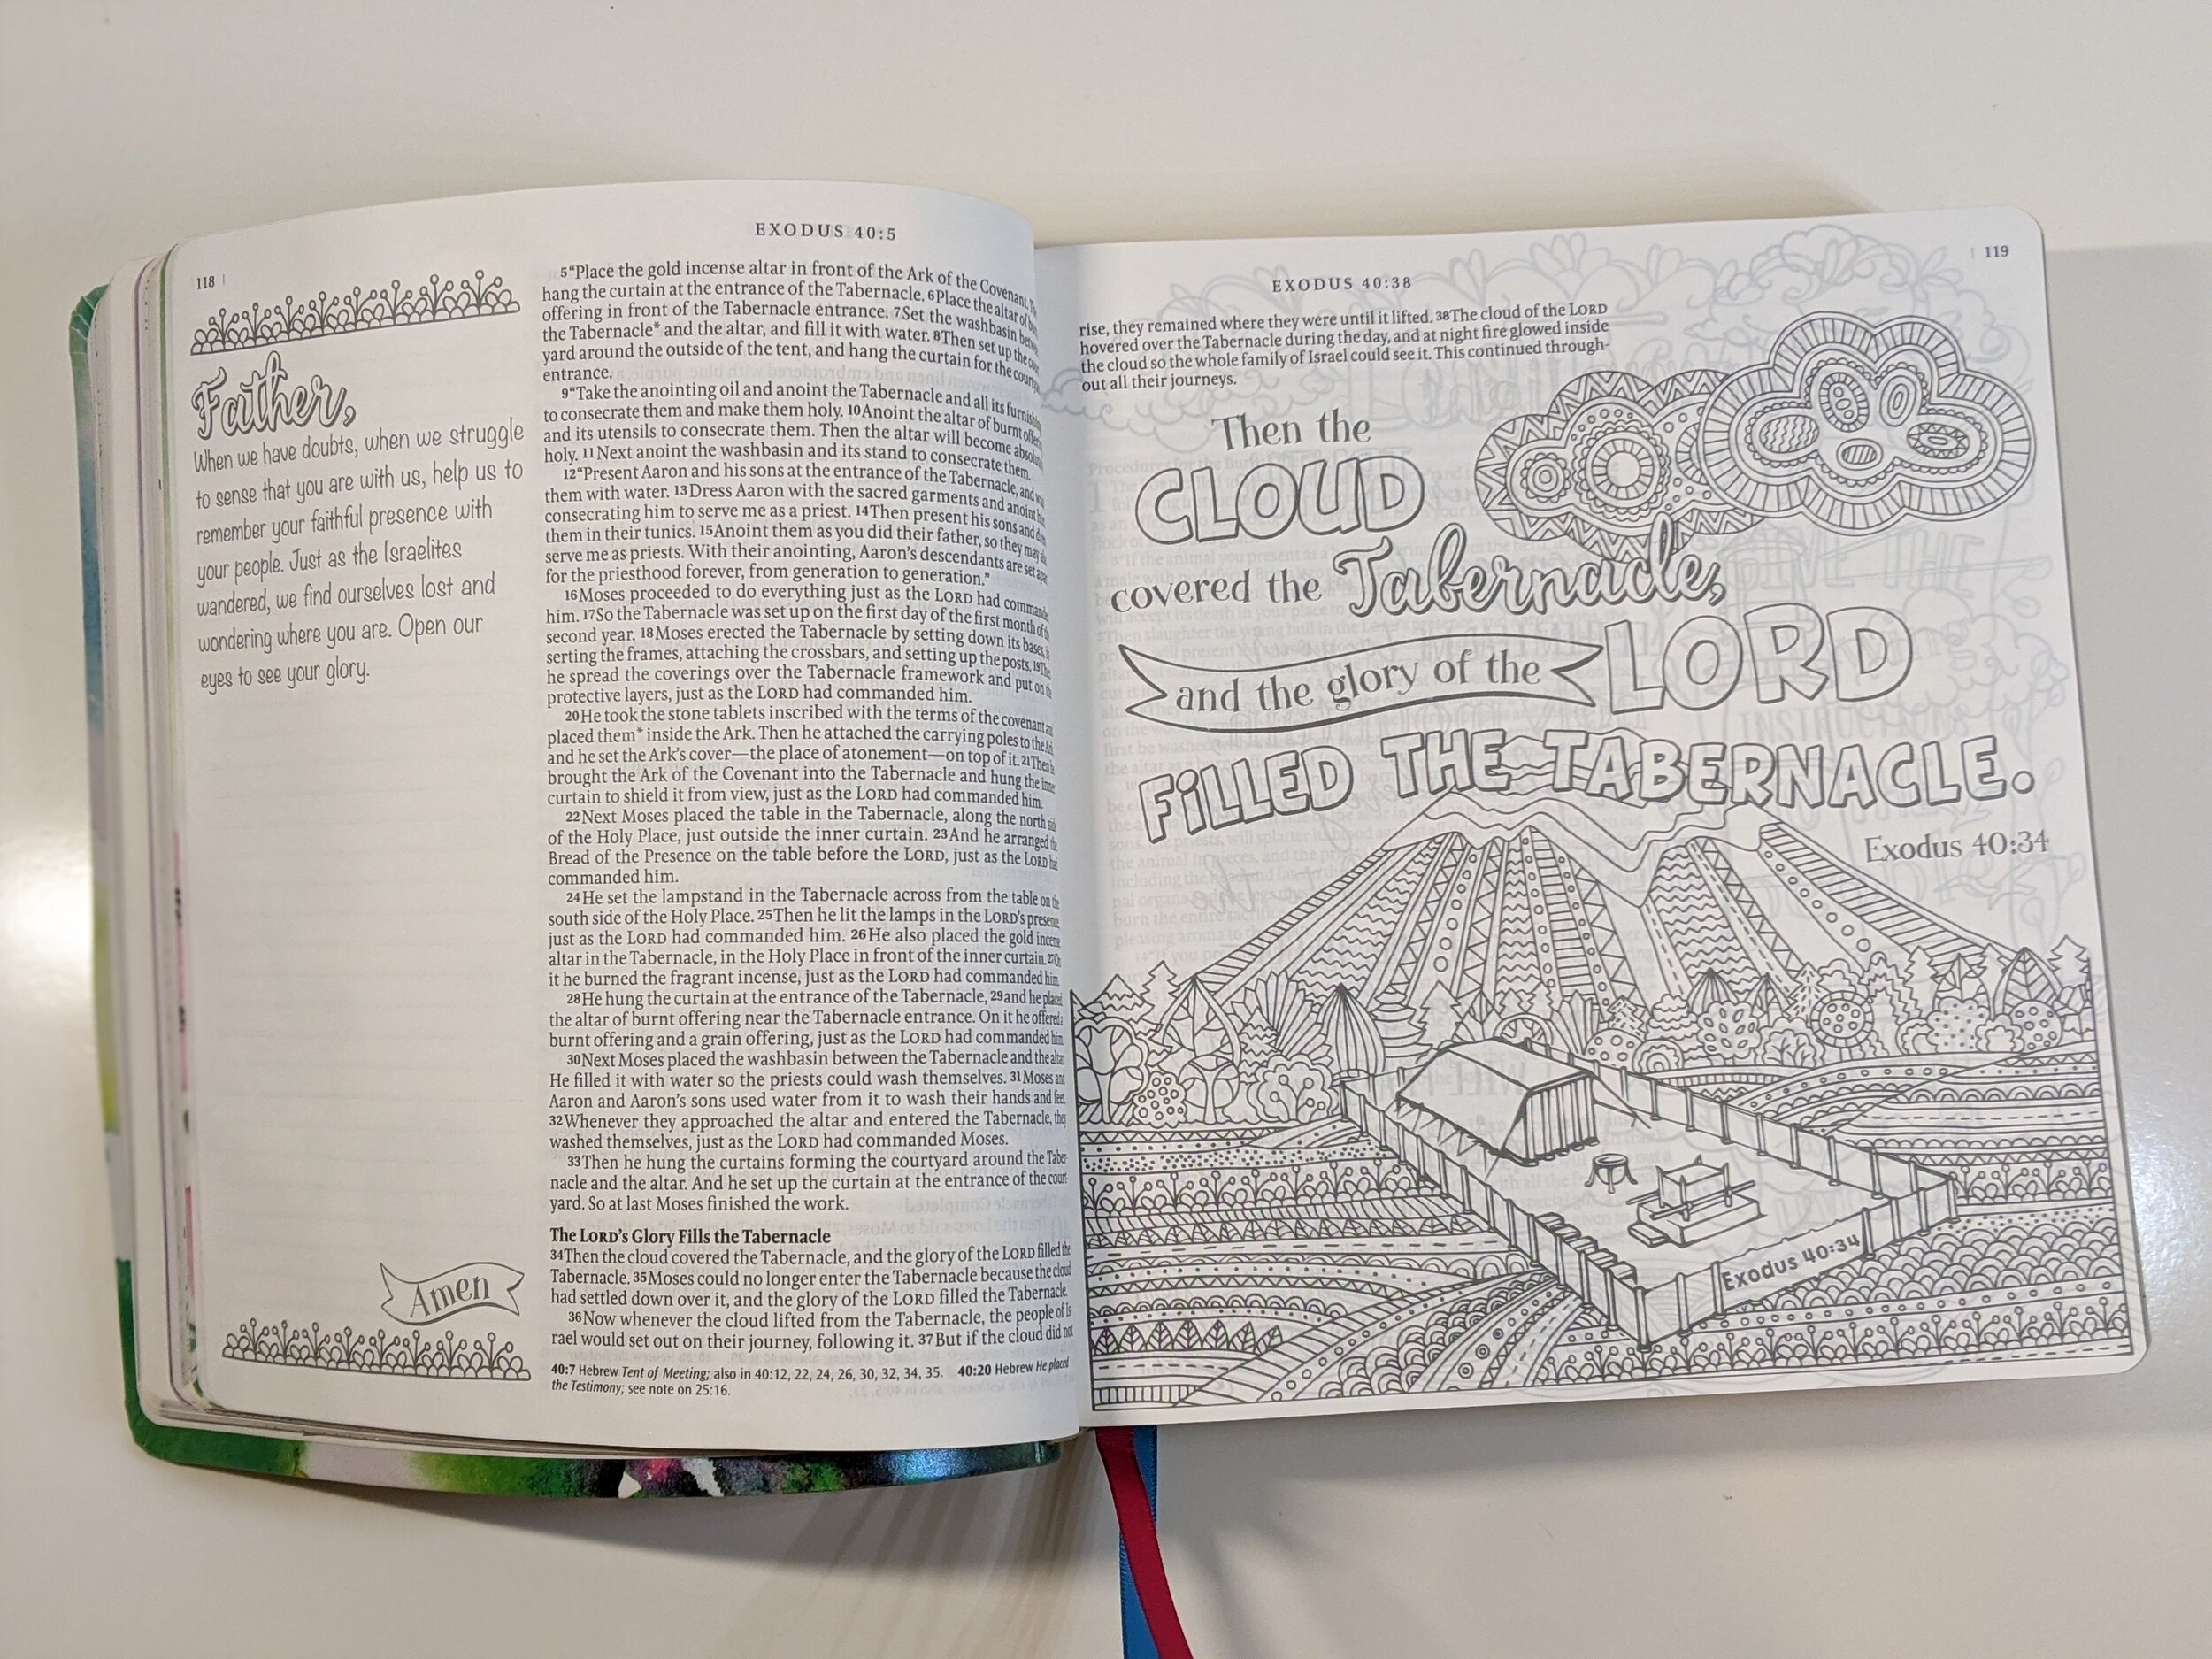 118
EXODUS 40:5
Father,
When we have doubts, when we struggle
to sense that you are with us, help us to
remember your faithful presence with
your people. Just as the Israelites
wandered, we find ourselves lost and
wondering where you are. Open our
eyes to see your glory.
Amen
5“Place the gold incense altar in front of the Ark of the Covenant.
hang the curtain at the entrance of the Tabernacle. 6Place the altar of
offering in front of the Tabernacle entrance. 7Set the washbasin
the Tabernacle* and the altar, and fill it with water. 8Then set up the
yard around the outside of the tent, and hang the curtain for the
entrance.
9“Take the anointing oil and anoint the Tabernacle and all its
to consecrate them and make them holy. 10Anoint the altar of burnt
and its utensils to consecrate them. Then the altar will become
holy. 11Next anoint the washbasin and its stand to consecrate them.
12“Present Aaron and his sons at the entrance of the Tabernacle, and
them with water. 13Dress Aaron with the sacred garments and anoint
consecrating him to serve me as a priest. 14Then present his sons and
them in their tunics. 15Anoint them as you did their father, so they may
serve me as priests. With their anointing, Aaron’s descendants are set
for the priesthood forever, from generation to generation.”
16Moses proceeded to do everything just as the LORD had
him. 17So the Tabernacle was set up on the first day of the first month of
second year. 18Moses erected the Tabernacle by setting down its bases,
serting the frames, attaching the crossbars, and setting up the posts.
he spread the coverings over the Tabernacle framework and put on
protective layers, just as the LORD had commanded him.
20He took the stone tablets inscribed with the terms of the covenant
placed them* inside the Ark. Then he attached the carrying poles to the
and he set the Ark’s cover—the place of atonement—on top of it. 21Then
brought the Ark of the Covenant into the Tabernacle and hung the
curtain to shield it from view, just as the LORD had commanded him.
22Next Moses placed the table in the Tabernacle, along the north
of the Holy Place, just outside the inner curtain. 23And he arranged
Bread of the Presence on the table before the LORD, just as the LORD
commanded him.
24He set the lampstand in the Tabernacle across from the table on
south side of the Holy Place. 25Then he lit the lamps in the LORD’s
just as the LORD had commanded him. 26He also placed the gold
altar in the Tabernacle, in the Holy Place in front of the inner curtain.
it he burned the fragrant incense, just as the LORD had commanded him.
28He hung the curtain at the entrance of the Tabernacle, 29and he placed
the altar of burnt offering near the Tabernacle entrance. On it he offered
burnt offering and a grain offering, just as the LORD had commanded him.
30Next Moses placed the washbasin between the Tabernacle and the altar.
He filled it with water so the priests could wash themselves. 31Moses and
Aaron and Aaron’s sons used water from it to wash their hands and feet.
32Whenever they approached the altar and entered the Tabernacle, they
washed themselves, just as the LORD had commanded Moses.
33Then he hung the curtains forming the courtyard around the Taber-
nacle and the altar. And he set up the curtain at the entrance of the court-
yard. So at last Moses finished the work.
The LORD’s Glory Fills the Tabernacle
34Then the cloud covered the Tabernacle, and the glory of the LORD filled the
Tabernacle. 35Moses could no longer enter the Tabernacle because the cloud
had settled down over it, and the glory of the LORD filled the Tabernacle.
36Now whenever the cloud lifted from the Tabernacle, the people of Is-
rael would set out on their journey, following it. 37But if the cloud did not
40:7 Hebrew Tent of Meeting; also in 40:12, 22, 24, 26, 30, 32, 34, 35. 40:20 Hebrew He placed
the Testimony; see note on 25:16.
EXODUS 40:38
119
rise, they remained where they were until it lifted. 38The cloud of the LORD
hovered over the Tabernacle during the day, and at night fire glowed inside
the cloud so the whole family of Israel could see it. This continued through-
out all their journeys.
Then the
CLOUD
covered the Tabernacle,
and the glory of the LORD
FiLLED THE TABERNACLE.
Exodus 40:34
Exodus 40:34